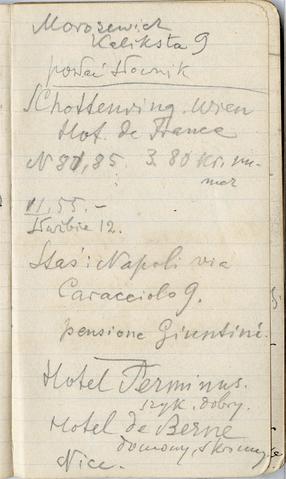 Morozewicz
Kaliksta 9
posłać słownik
Schottenring. Wien
Hot. de France
N 81, 85. 3. 80 Kr. nu-
mer
11, 55. –
12.
Staś: Napoli via
Caracciolo 9.
pensione Giuntini.
Hotel Terminus.
szyk. dobry.
Hotel de Berne
domowy,
Nice.